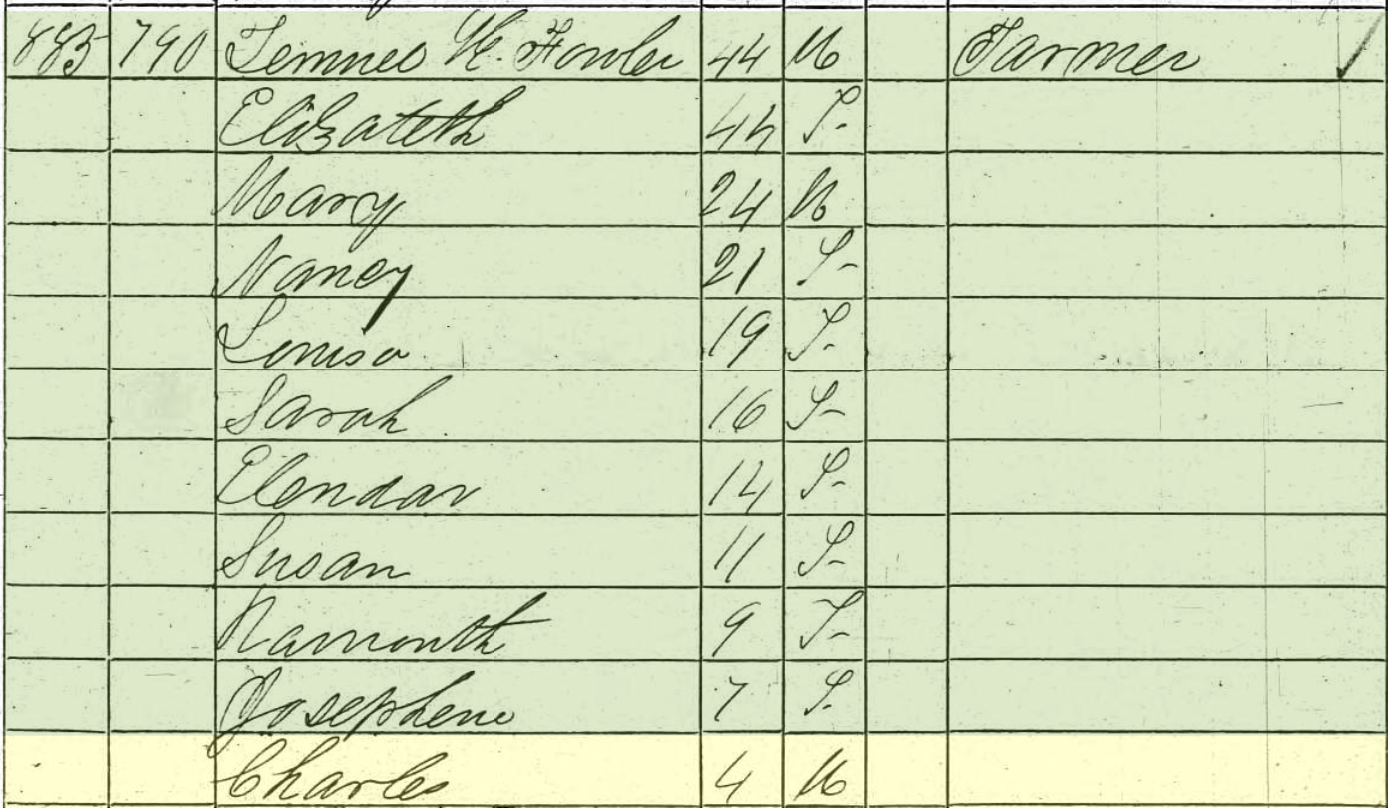 883 790 Lemuel W. Fowler 44 M Farmer
Elizabeth 44 F
Mary 24 M
Nancy 21 F
Louisa 19 F
Sarah 16 F
Elendar 14 F
Susan 11 F
9 F
Josephene 7 F
Charles 4 M